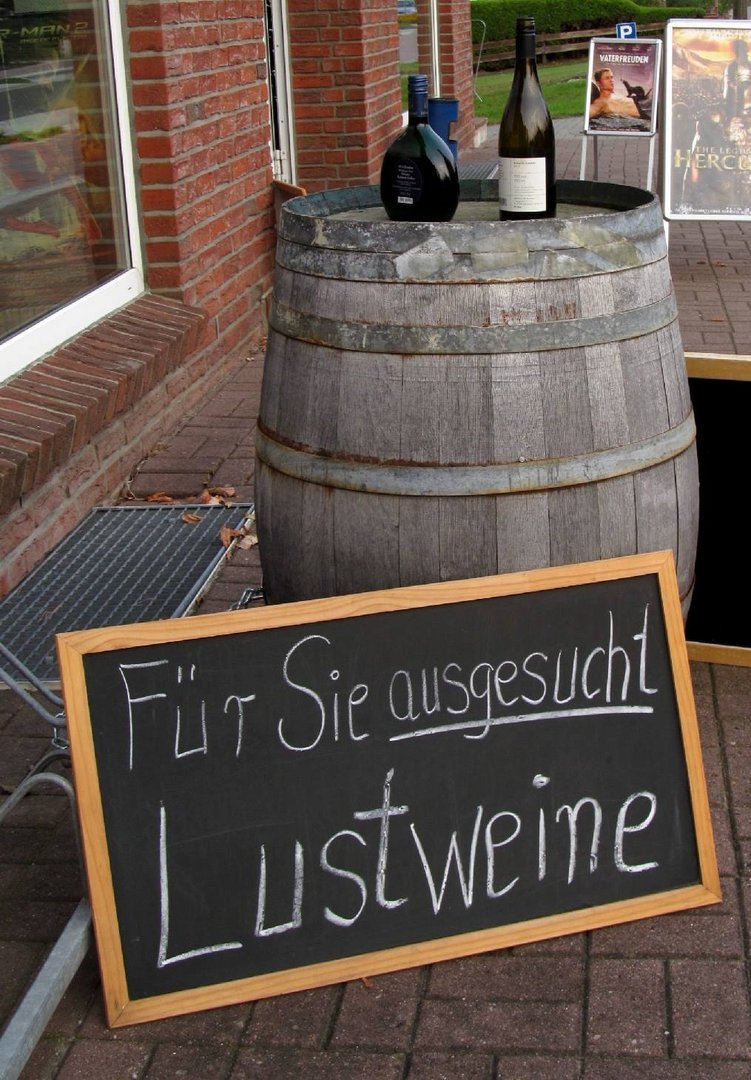 R-MAN 2
P
VATERFREUDEN
THE LEGE
HERCU
Für Sie ausgesucht
Lustweine